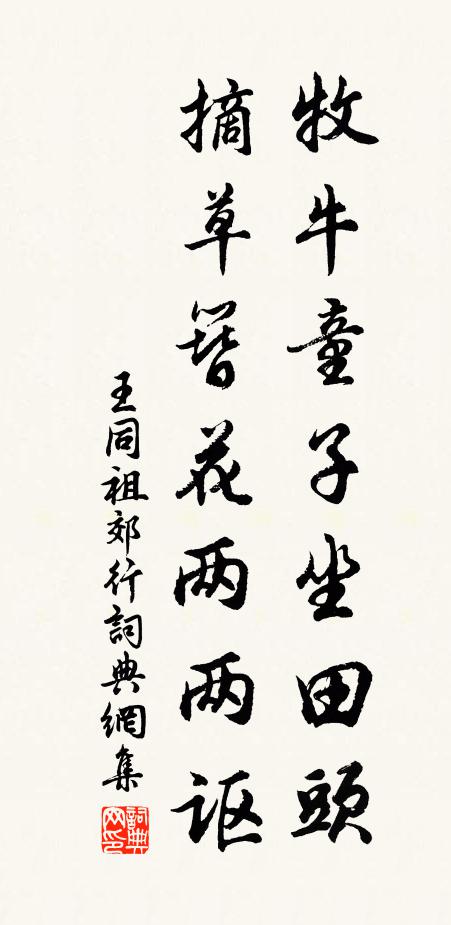 牧牛童子坐田頭
摘草簪花两两讴
王同祖郊行詞典網集
詞典网印